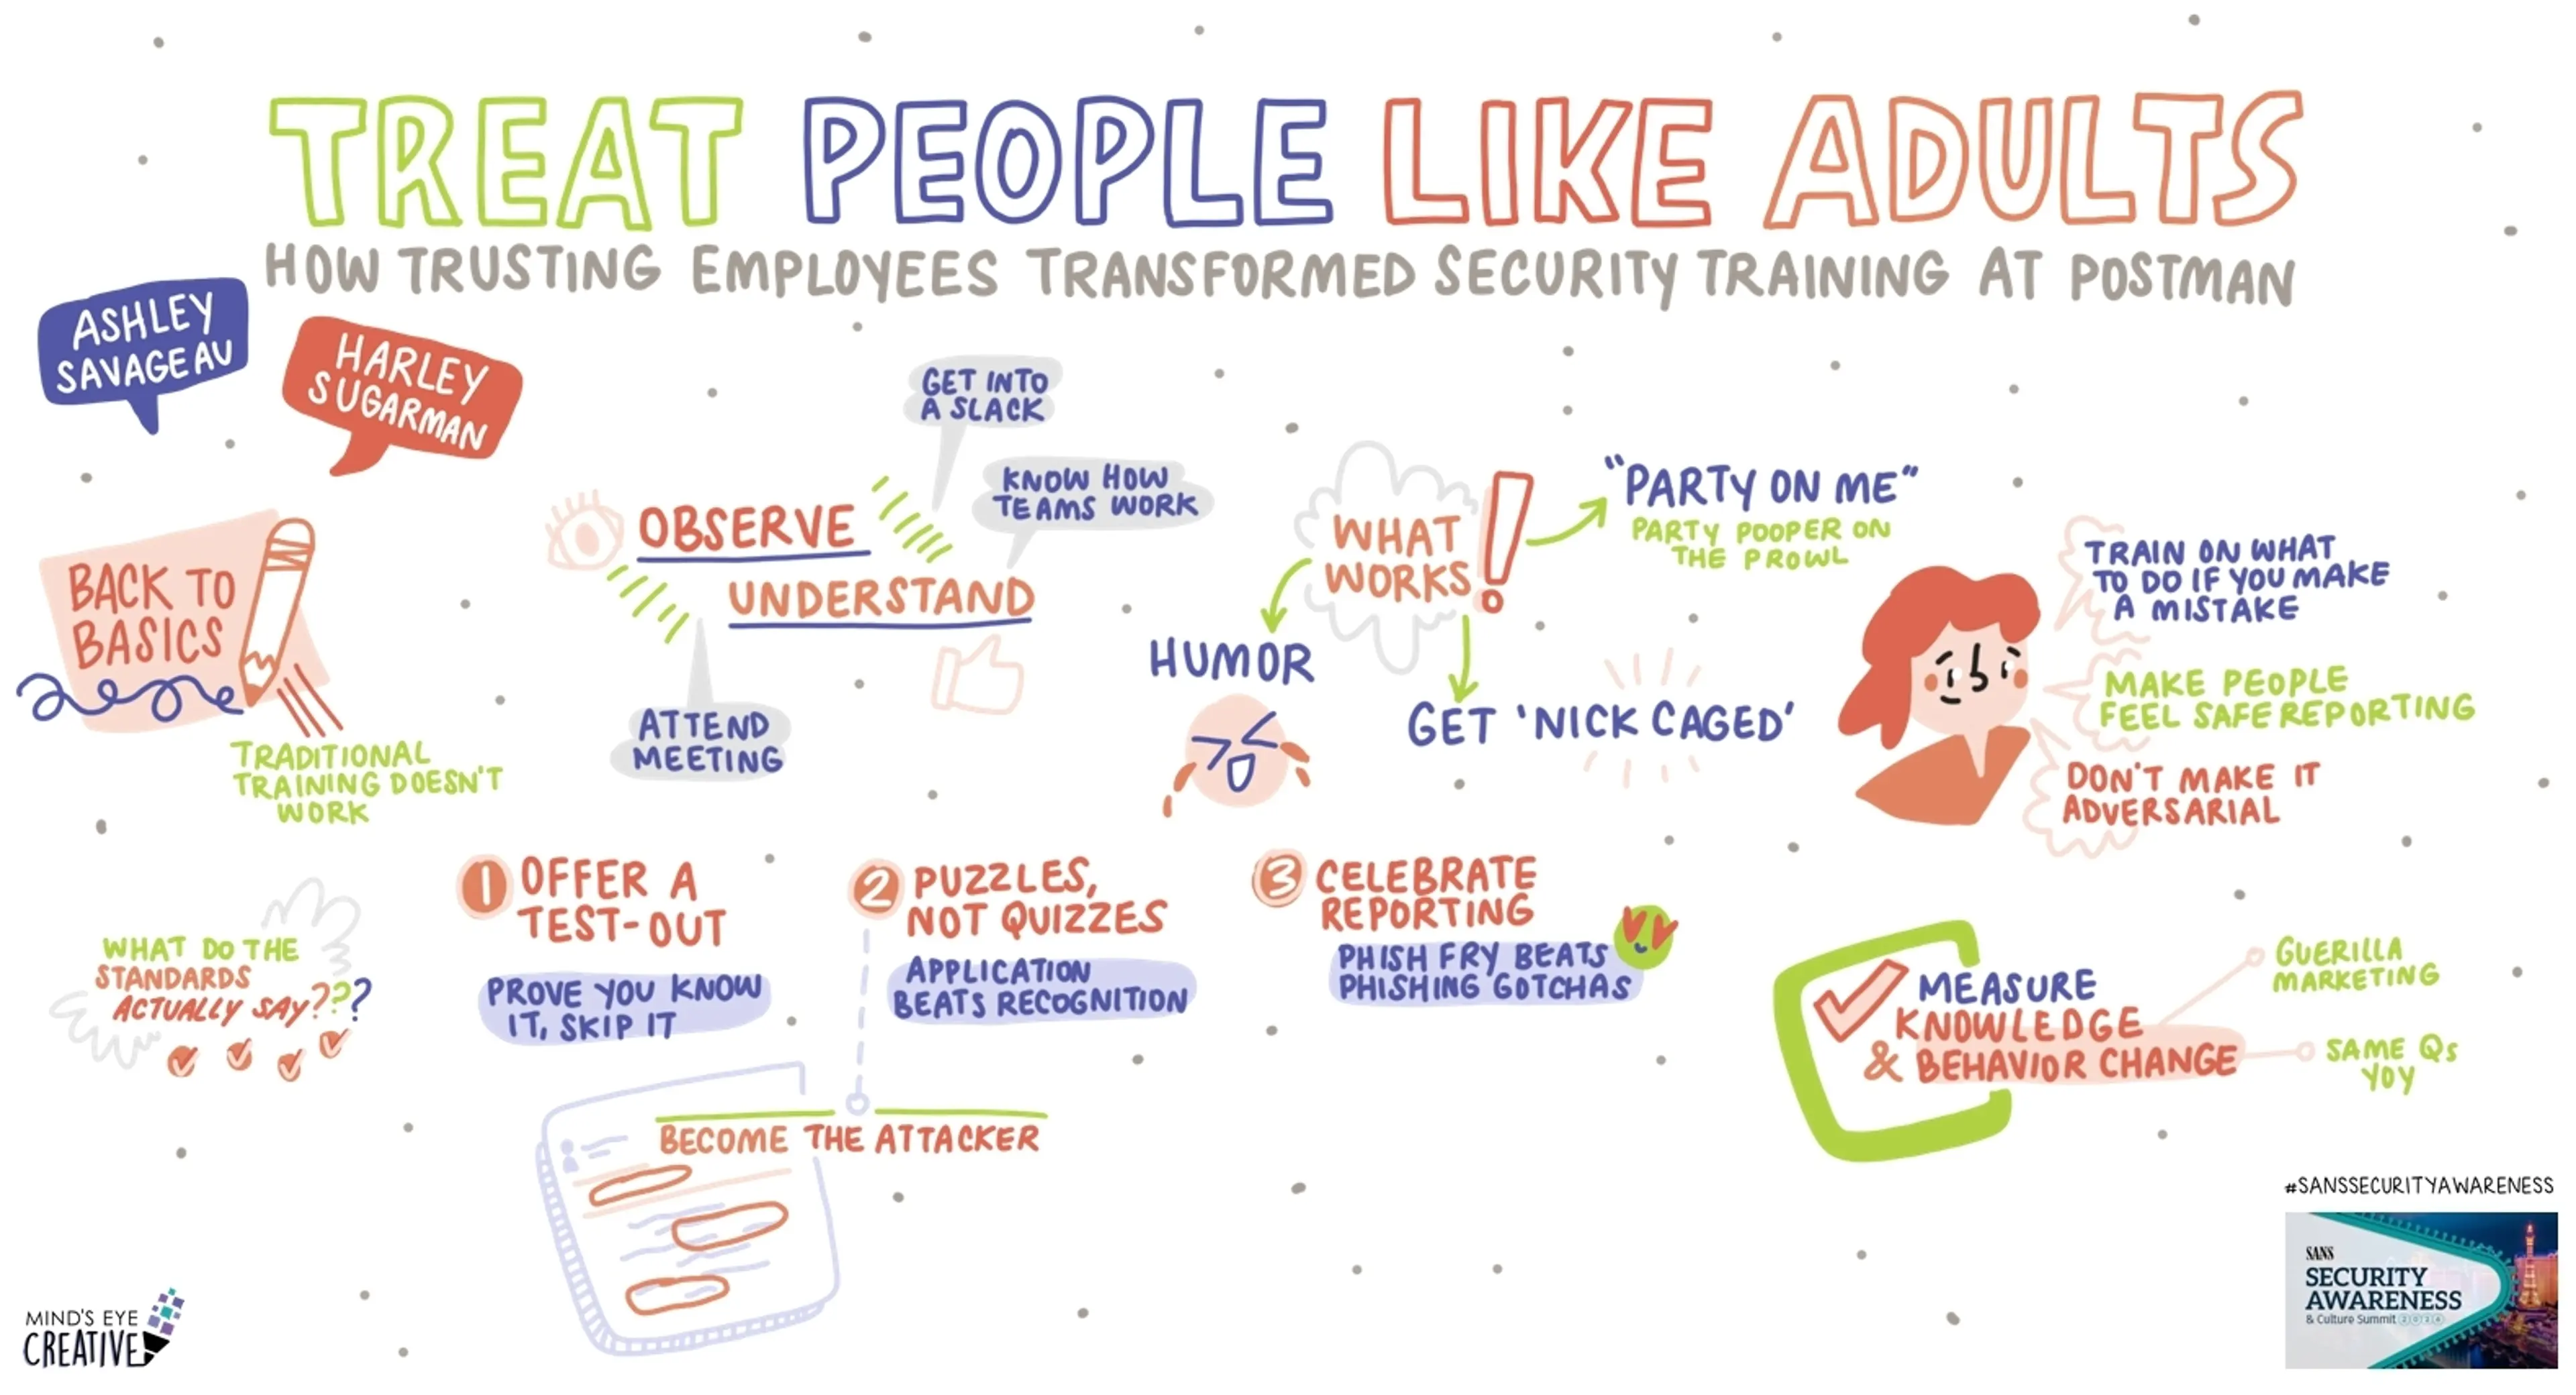 TREAT PEOPLE LIKE ADULTS
HOW TRUSTING EMPLOYEES TRANSFORMED SECURITY TRAINING AT POSTMAN
ASHLEY
SAVAGEAU
HARLEY
SUGARMAN
BACK TO
BASICS
TRADITIONAL
TRAINING DOESN'T
WORK
OBSERVE
UNDERSTAND
GET INTO
A SLACK
KNOW HOW
TEAMS WORK
ATTEND
MEETING
WHAT
WORKS!
"PARTY ON ME"
PARTY POOPER ON
THE PROWL
HUMOR
GET 'NICK CAGED'
TRAIN ON WHAT
TO DO IF YOU MAKE
A MISTAKE
MAKE PEOPLE
FEEL SAFE REPORTING
DON'T MAKE IT
ADVERSARIAL
WHAT DO THE
STANDARDS
ACTUALLY SAY???
1 OFFER A
TEST-OUT
PROVE YOU KNOW
IT, SKIP IT
2 PUZZLES,
NOT QUIZZES
APPLICATION
BEATS RECOGNITION
BECOME THE ATTACKER
3 CELEBRATE
REPORTING
PHISH FRY BEATS
PHISHING GOTCHAS
MEASURE
KNOWLEDGE
& BEHAVIOR CHANGE
GUERILLA
MARKETING
SAME Qs
YOY
#SANSSECURITYAWARENESS
SANS
SECURITY
AWARENESS
& Culture Summit
MIND'S EYE
CREATIVE